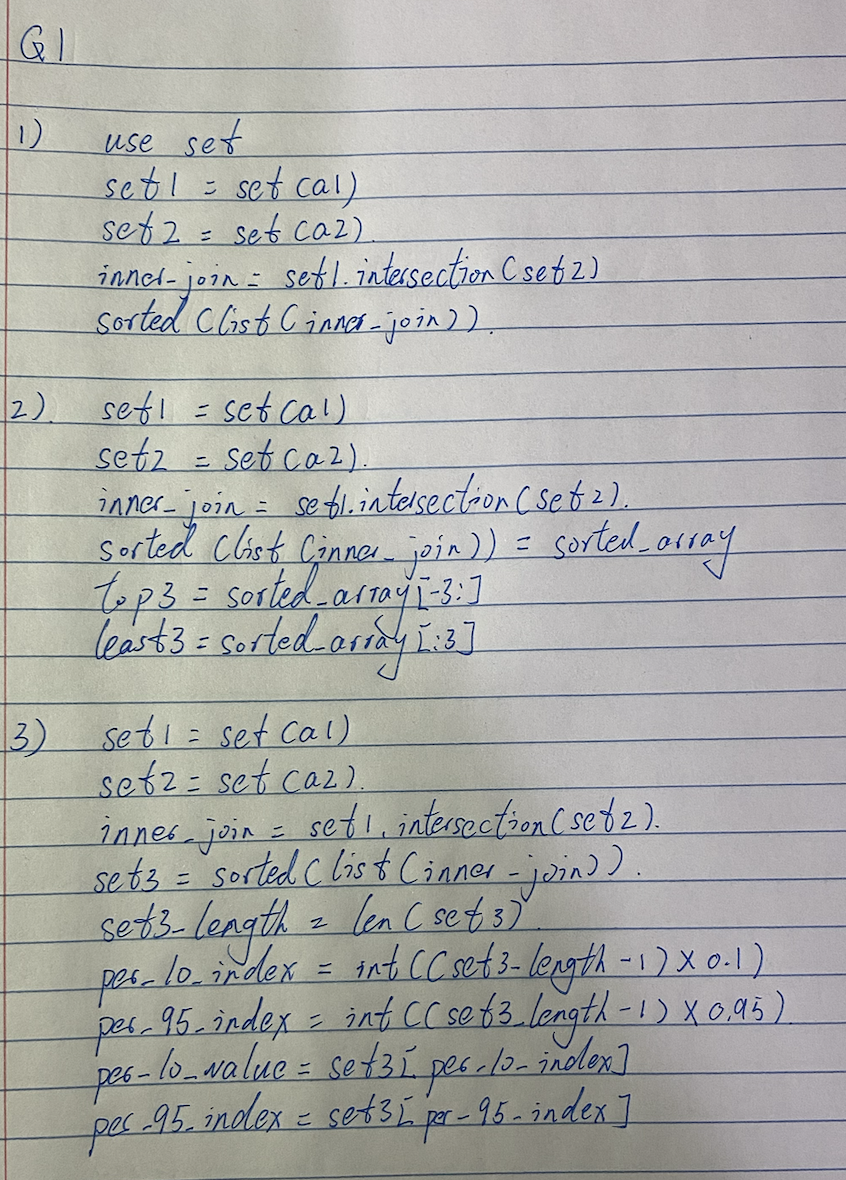 Q1
1) use set
set1 = set(a1)
set2 = set(a2).
inner_join = set1.intersection(set2)
sorted (list(inner_join)).
2). set1 = set(a1)
set2 = set(a2).
inner_join = set1.intersection(set2).
sorted (list (inner_join)) = sorted_array
top3 = sorted_array[-3:]
least3 = sorted_array[:3]
3) set1 = set(a1)
set2 = set(a2).
inner_join = set1.intersection(set2).
set3 = sorted(list(inner_join)).
set3_length = len(set3)
per_10_index = int((set3_length-1) × 0.1)
per_95_index = int((set3_length-1) × 0.95)
per_10_value = set3[per_10_index]
per_95_index = set3[per_95_index]